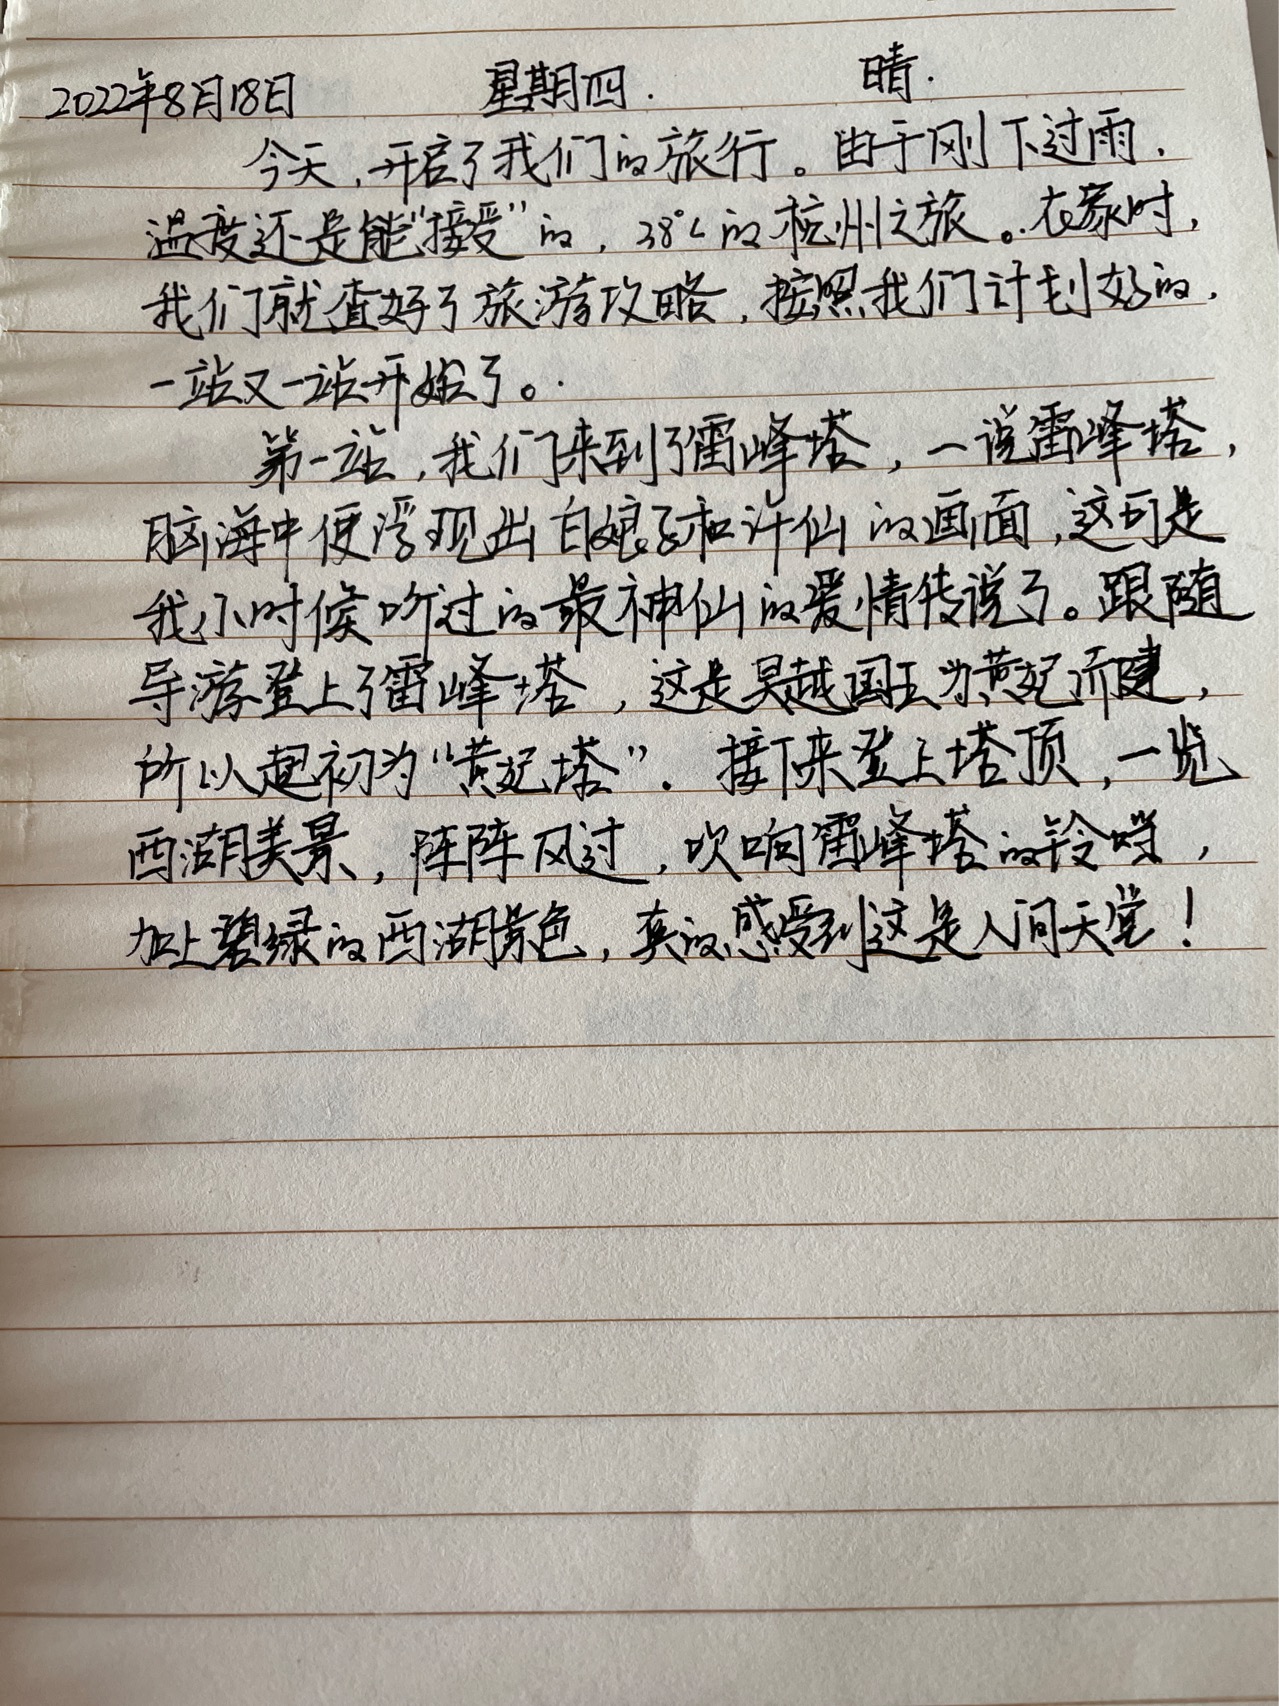 2022年8月18日 星期四. 晴.
今天,开启了我们的旅行。由于刚下过雨,
温度还是能“接受”的,38℃的杭州之旅。在家时,
我们就查好了旅游攻略,按照我们计划好的,
一站又一站开始了。
第一站,我们来到了雷峰塔,一说雷峰塔,
脑海中便浮现出白娘子和许仙的画面,这可是
我小时候听过的最神仙的爱情传说了。跟随
导游登上了雷峰塔,这是吴越国王为黄妃而建,
所以起初为“黄妃塔”. 接下来登上塔顶,一览
西湖美景,阵阵风过,吹响雷峰塔的铃铛,
加上碧绿的西湖景色,真的感受到这是人间天堂!